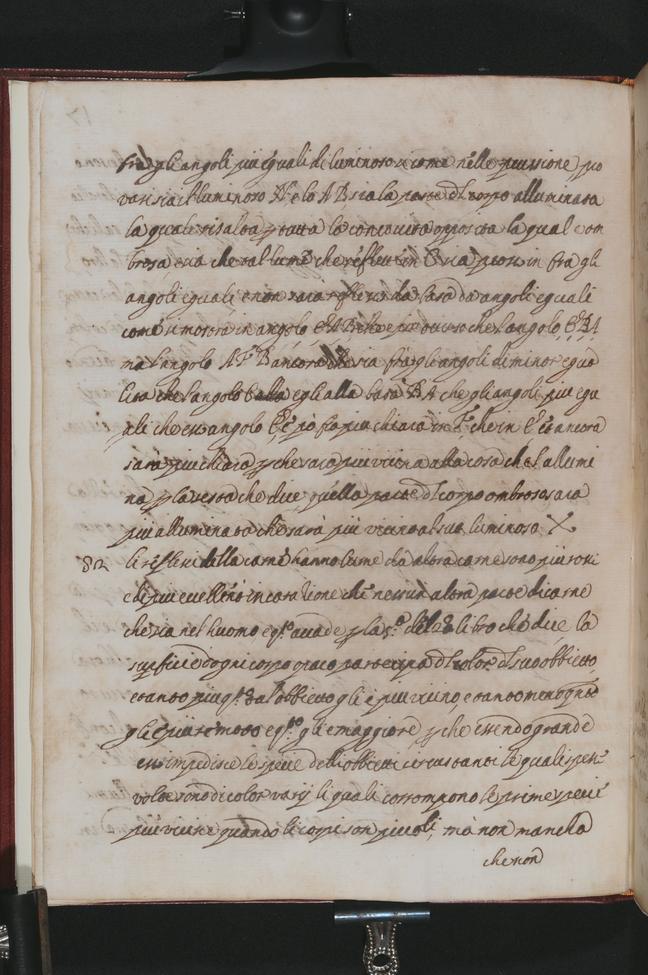 fra gli angoli piu eguali di luminoso si come nelle percussione, po
varisia il luminoso N e lo AB sia la parte d'l corpo alluminata
la quale risalta p tutta la concavità opposita la qual e om
brosa e sia che tal lume che reflette in E sia percosso in fra gli
angoli eguali, e non sara reflesso da basa da angoli eguali
come si mostra in angolo EAB che e piu ottuso che l'angolo EBA
ma l'angolo AFB ancora che sia fra gli angoli di minor equa
lità che l'angolo E egli alla basa BA che gli angoli piu egu
ali che esso angolo E e pò fia piu chiara in F che in E e ancora
sarà piu chiara p che sara piu vicina alla cosa che l'allumi
na p la sesta che dice quella parte d'l corpo ombroso sara
piu alluminata che sarà piu vicina al suo luminoso X
82 li reflessi della carne hanno lume da altra carne sono piu rossi
e di piu eccellente incarnatione che nessun altra parte di carne
che sia nel huomo e qsto accade p la 3a del 2o libro che dice la
superficie d'ogni corpo opaco partecipa d'l color d'l suo obbietto,
e tanto piu qto tal'obbietto gli è piu vicino, e tanto meno qnto
gli è piu remoto e qto gli e maggiore, p che essendo grande
esso impedisce le specie delli obbietti circustanti le quali spesse
volte sono di color varij li quali corrompono le prime specie
piu vicine quando li corpi son piccoli, ma non mancha
che non